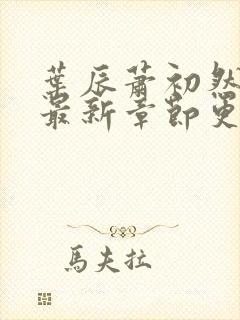 葉辰蕭初然
最新章節更
馬夫拉